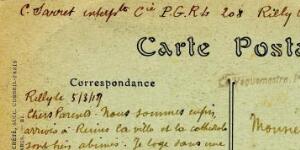 C. Sarret interpte Cie P.G. Rts 208 Rilly
Carte Posta
Correspondance
Rilly le 5/3/19
Chers Parents - Nous sommes enfin
arrivés à Reims la ville et la cathédrale
sont très abimés. Je loge dans une